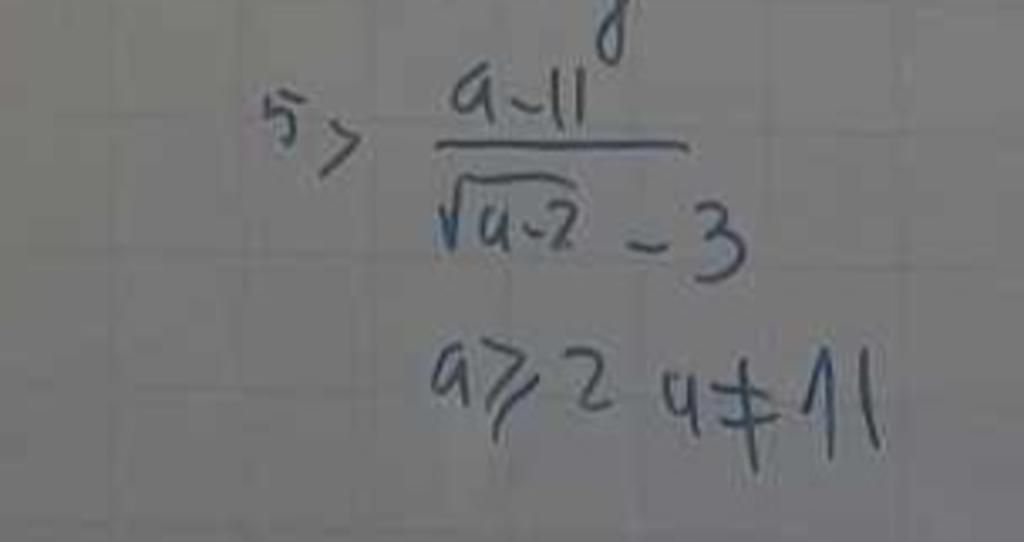 5> a-11
√a-2 - 3
a⩾2 a≠11